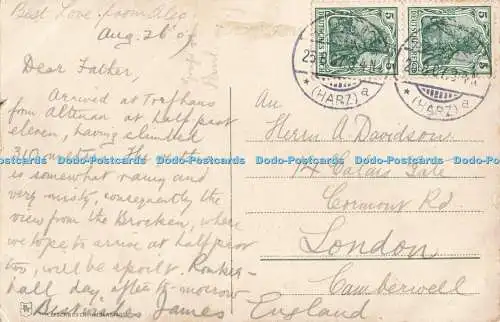 Best Love from Alec
Aug. 26 09
Dear Father,
Arrived at Torfhaus
from Altenau at half past
eleven, having climbed
310 metres. The
is somewhat rainy and
very misty, consequently the
view from the Brocken, where
we hope to arrive at half past
two, will be spoilt.
half day, after to-morrow
Best wishes James
An
Herrn A Davidson
14 Calais Gate
Cormont Rd
London
Camberwell
England
5 5
(HARZ) a (HARZ) a
Postcards Postcards Postcards Postcards Postcards Postcards